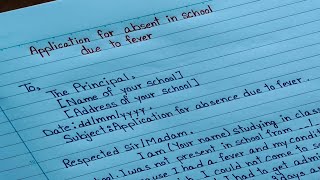 Application for absent in school
due to fever
To,
The Principal,
[Name of your school]
[Address of your school]
Date:dd/mm/yyyy.
Subject:Application for absence due to fever.
Respected Sir/Madam,
I am (Your name) studying in class
school. I was not present in school from
I had a fever and my condi
I could not come to s
I had to get adm
days a